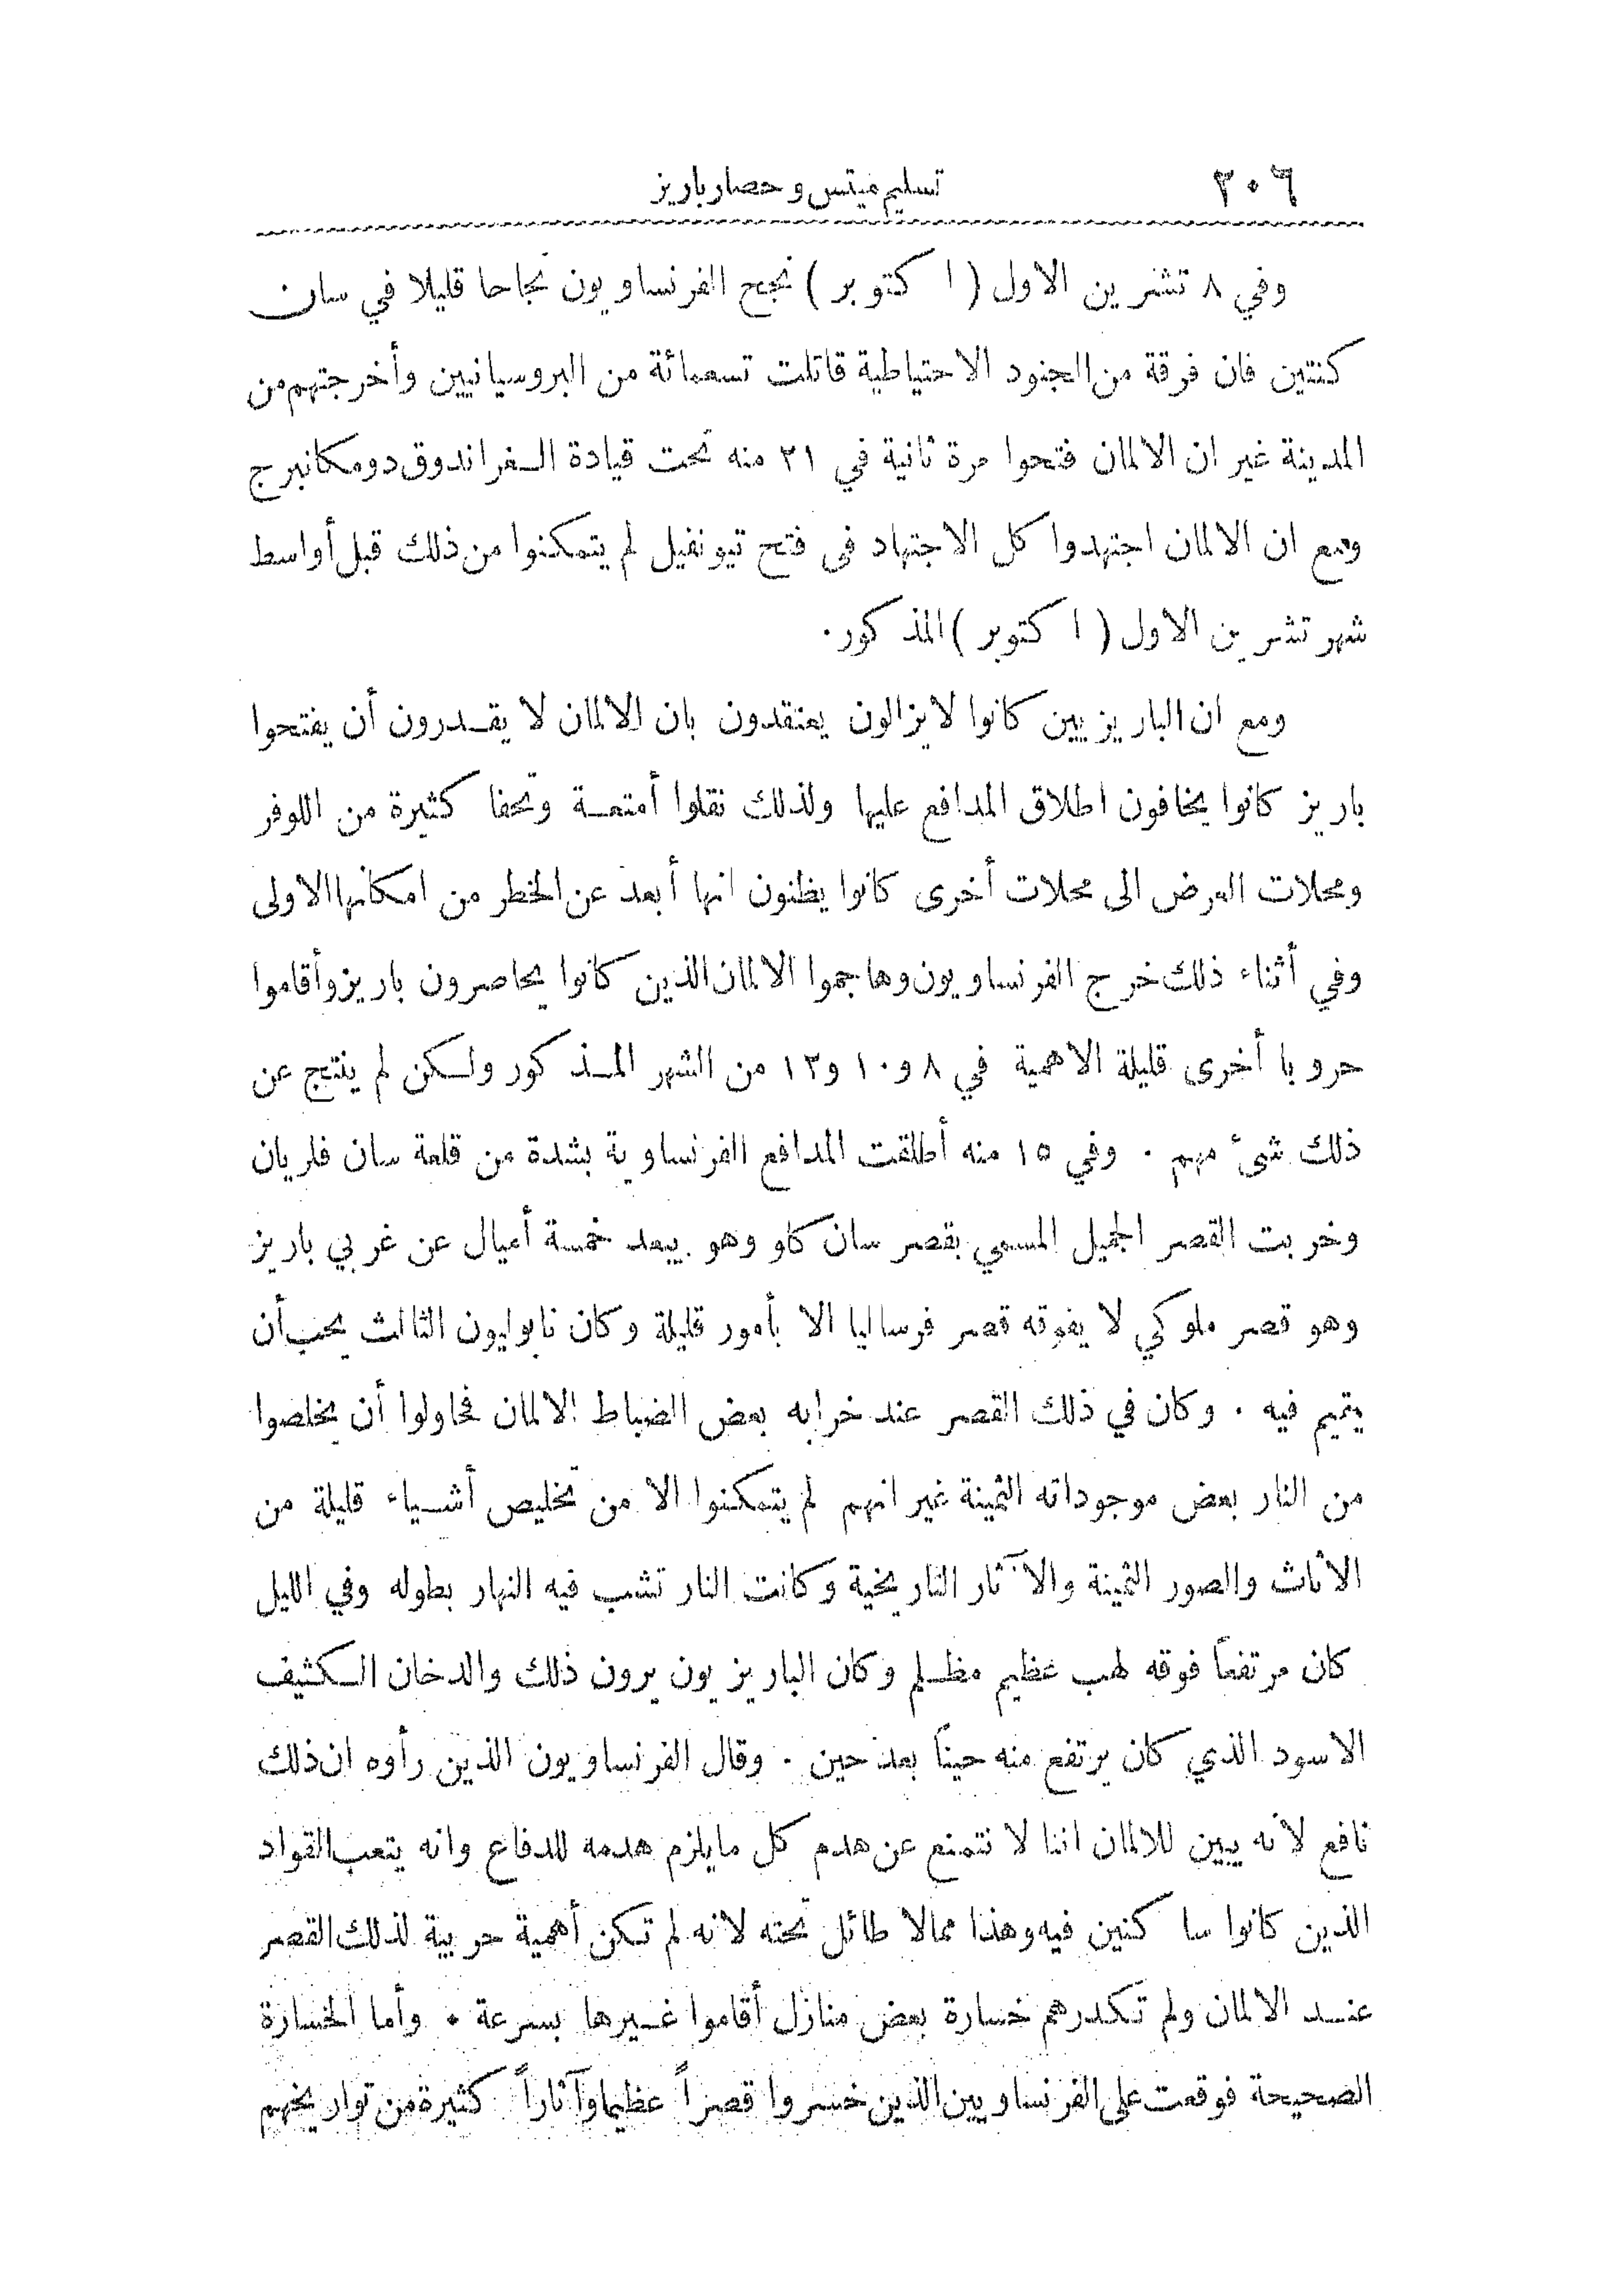 ٣٠٦ تسليم ميتس وحصار باريز
وفي ٨ تشرين الاول ( اكتوبر ) نجح الفرنساويون نجاحا قليلا في سان
كنتين فان فرقة من الجنود الاحتياطية قاتلت تسعمائة من البروسيانيين وأخرجتهم من
المدينة غير ان الالمان فتحوا مرة ثانية في ٢١ منه تحت قيادة الغراندوق دومكلنبرج
ومع ان الالمان اجتهدوا كل الاجتهاد في فتح تيونفيل لم يتمكنوا من ذلك قبل أواسط
شهر تشرين الاول ( اكتوبر ) المذكور.
ومع ان الباريزيين كانوا لايزالون يعتقدون بان الالمان لا يقدرون أن يفتحوا
باريز كانوا يخافون اطلاق المدافع عليها ولذلك نقلوا أمتعة وتحفا كثيرة من اللوفر
ومحلات العرض الى محلات أخرى كانوا يظنون انها أبعد عن الخطر من امكانها الاولى
وفي أثناء ذلك خرج الفرنساويون وهاجموا الالمان الذين كانوا يحاصرون باريز وأقاموا
حروبا أخرى قليلة الاهمية في ٨ و١٠ و١٣ من الشهر المذكور ولكن لم ينتج عن
ذلك شئ مهم . وفي ١٥ منه أطلقت المدافع الفرنساوية بشدة من قلعة سان فلريان
وخربت القصر الجميل المسمي بقصر سان كلو وهو يبعد خمسة أميال عن غربي باريز
وهو قصر ملوكي لا يفوقه قصر فرساليا الا بأمور قليلة وكان نابوليون الثالث يحب أن
يقيم فيه . وكان في ذلك القصر عند خرابه بعض الضباط الالمان فحاولوا أن يخلصوا
من النار بعض موجوداته الثمينة غير انهم لم يتمكنوا الا من تخليص أشياء قليلة من
الاثاث والصور الثمينة والآثار التاريخية وكانت النار تشب فيه النهار بطوله وفي الليل
كان مرتفعاً فوقه لهب عظيم مظلم وكان الباريزيون يرون ذلك والدخان الكثيف
الاسود الذي كان يرتفع منه حيناً بعد حين . وقال الفرنساويون الذين رأوه ان ذلك
نافع لانه يبين للالمان اننا لا نتمنع عن هدم كل مايلزم هدمه للدفاع وانه يتعب القواد
الذين كانوا ساكنين فيه وهذا ممالا طائل تحته لانه لم تكن أهمية حربية لذلك القصر
عند الالمان ولم تكدرهم خسارة بعض منازل أقاموا غيرها بسرعة . وأما الخسارة
الصحيحة فوقعت على الفرنساويين الذين خسروا قصراً عظيما وآثاراً كثيرة من تواريخهم